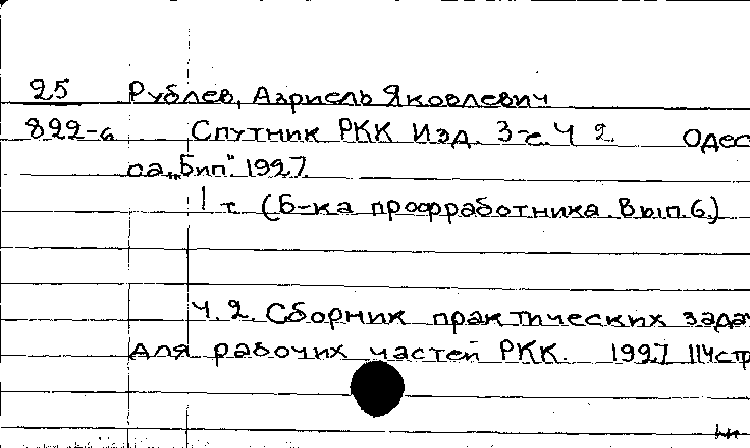 25 Рублев, Азриель Яковлевич
822-а Спутник РКК Изд. 3-е. Ч 2. Одес
са „Бип". 1927
1 т. (Б-ка профработника. Вып. 6.)
Ч. 2. Сборник практических зада
для рабочих частей РКК. 1927 114стр